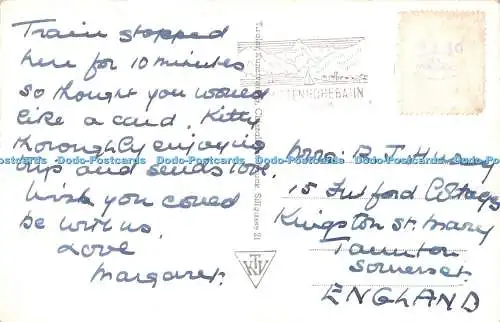 Train stopped
here for 10 minutes
so thought you would
like a card. Kitty
thoroughly enjoying
trip and sends love.
Wish you could
be with us.
Love
Margaret.
Mrs. B. T. Husey
15 Fulford Cottages
Kingston St. Mary
Taunton
Somerset.
ENGLAND
KTV
Dodo-Postcards Dodo-Postcards Dodo-Postcards Dodo-Postcards Dodo-Postcards Dodo-Postcards